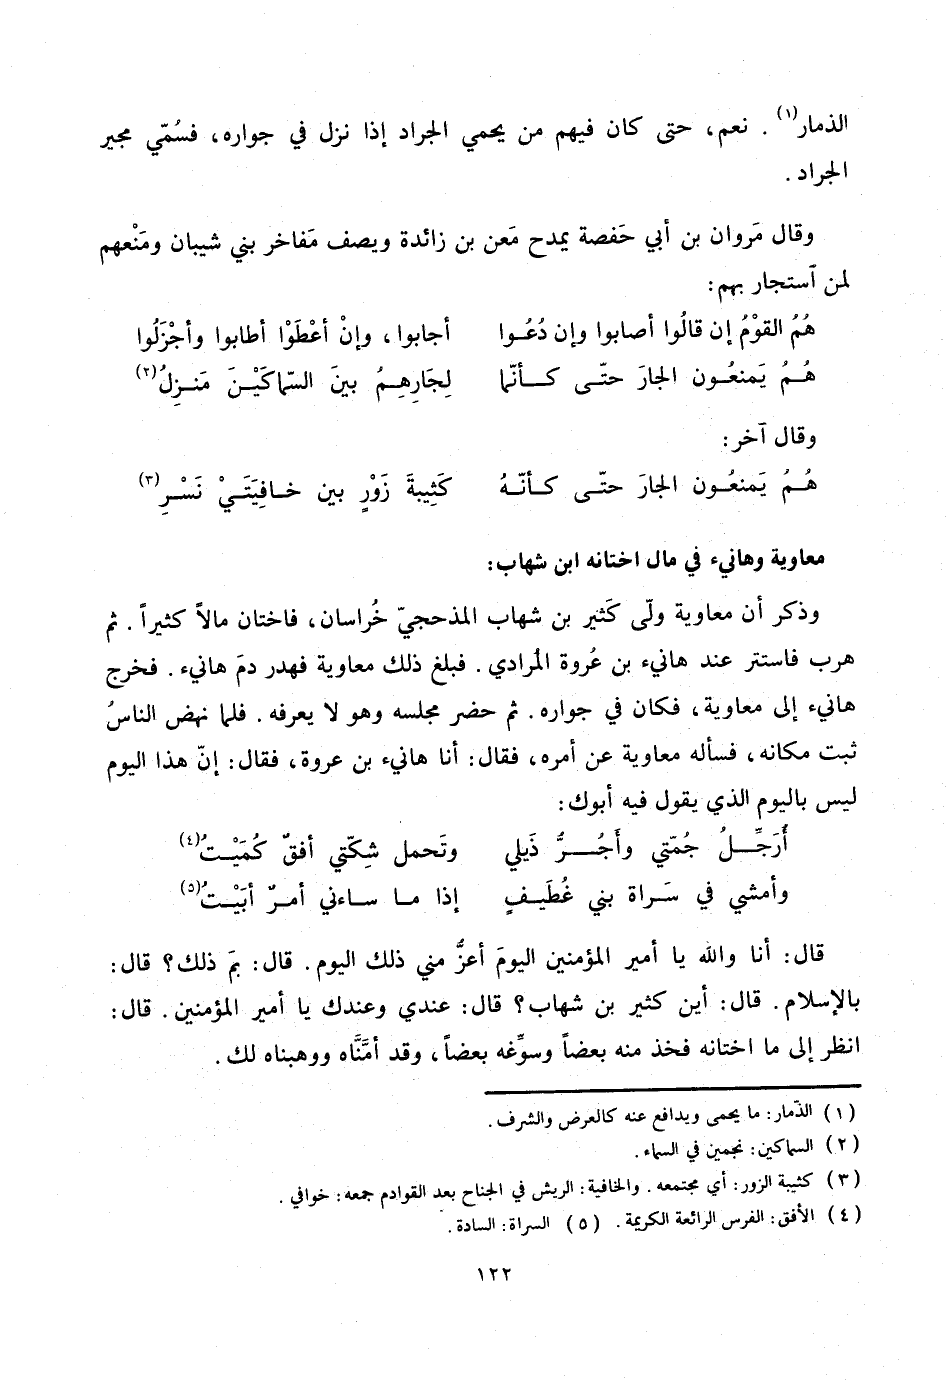 الذمار(١) . نعم، حتى كان فيهم من يحمي الجراد إذا نزل في جواره، فسُمّي مجير
الجراد .
وقال مَروان بن أبي حَفصة يمدح مَعن بن زائدة ويصف مَفاخر بني شيبان ومَنْعهم
لمن ٱستجار بهم:
هُمُ القوْمُ إن قالُوا أصابوا وإن دُعُـوا أجابوا، وإنْ أعْطَوْا أطابوا وأجْزَلُوا
هُـمُ يَمنعُـون الجارَ حتّـى كـأنّما لِجَارِهِـمُ بينَ السّماكَيْـنَ مَنـزِلُ(٢)
وقال آخر:
هُـمُ يَمنعُـون الجارَ حتّـى كـأنّـهُ كَثِيبةَ زَوْرٍ بين خـافِيَتَـيْ نَسْـرِ(٣)
معاوية وهانيء في مال اختانه ابن شهاب:
وذكر أن معاوية ولّى كَثير بن شهاب المذحجيّ خُراسان، فاختان مالاً كثيراً . ثم
هرب فاستتر عند هانيء بن عُروة المُرادي. فبلغ ذلك معاوية فهدر دمَ هانيء. فخرج
هانيء إلى معاوية، فكان في جواره. ثم حضر مجلسه وهو لا يعرفه. فلما نهض الناسُ
ثبت مكانه، فسأله معاوية عن أمره، فقال: أنا هانيء بن عروة، فقال: إنّ هذا اليوم
ليس باليوم الذي يقول فيه أبوك:
أُرَجِّـــلُ جُمّتي وأَجُـــرُّ ذَيلي وتَحمل شِكّتي أفقٌ كُمَيْـتُ(٤)
وأمشي في سَـراة بني غُطَيـفٍ إذا مـا سـاءني أمـرٌ أبَيْـتُ(٥)
قال: أنا والله يا أمير المؤمنين اليومَ أعزُّ مني ذلك اليوم. قال: بمَ ذلك؟ قال:
بالإسلام. قال: أين كثير بن شهاب؟ قال: عندي وعندك يا أمير المؤمنين. قال:
انظر إلى ما اختانه فخذ منه بعضاً وسوِّغه بعضاً، وقد أمَّنَّاه ووهبناه لك.
(١) الذّمار: ما يحمى ويدافع عنه كالعرض والشرف.
(٢) السماكين: نجمين في السماء.
(٣) كثيبة الزور: أي مجتمعه. والخافية: الريش في الجناح بعد القوادم جمعه: خوافي.
(٤) الأفق: الفرس الرائعة الكريمة. (٥) السراة: السادة.
١٢٢